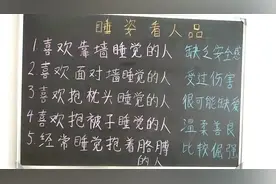 睡姿看人品
1喜欢靠墙睡觉的人 缺乏安全感
2.喜欢面对墙睡觉的人 受过伤害
3.喜欢抱枕头睡觉的人 很可能缺爱
4喜欢抱被子睡觉的人 温柔善良
5.经常睡觉抱着胳膊的人 比较倔强